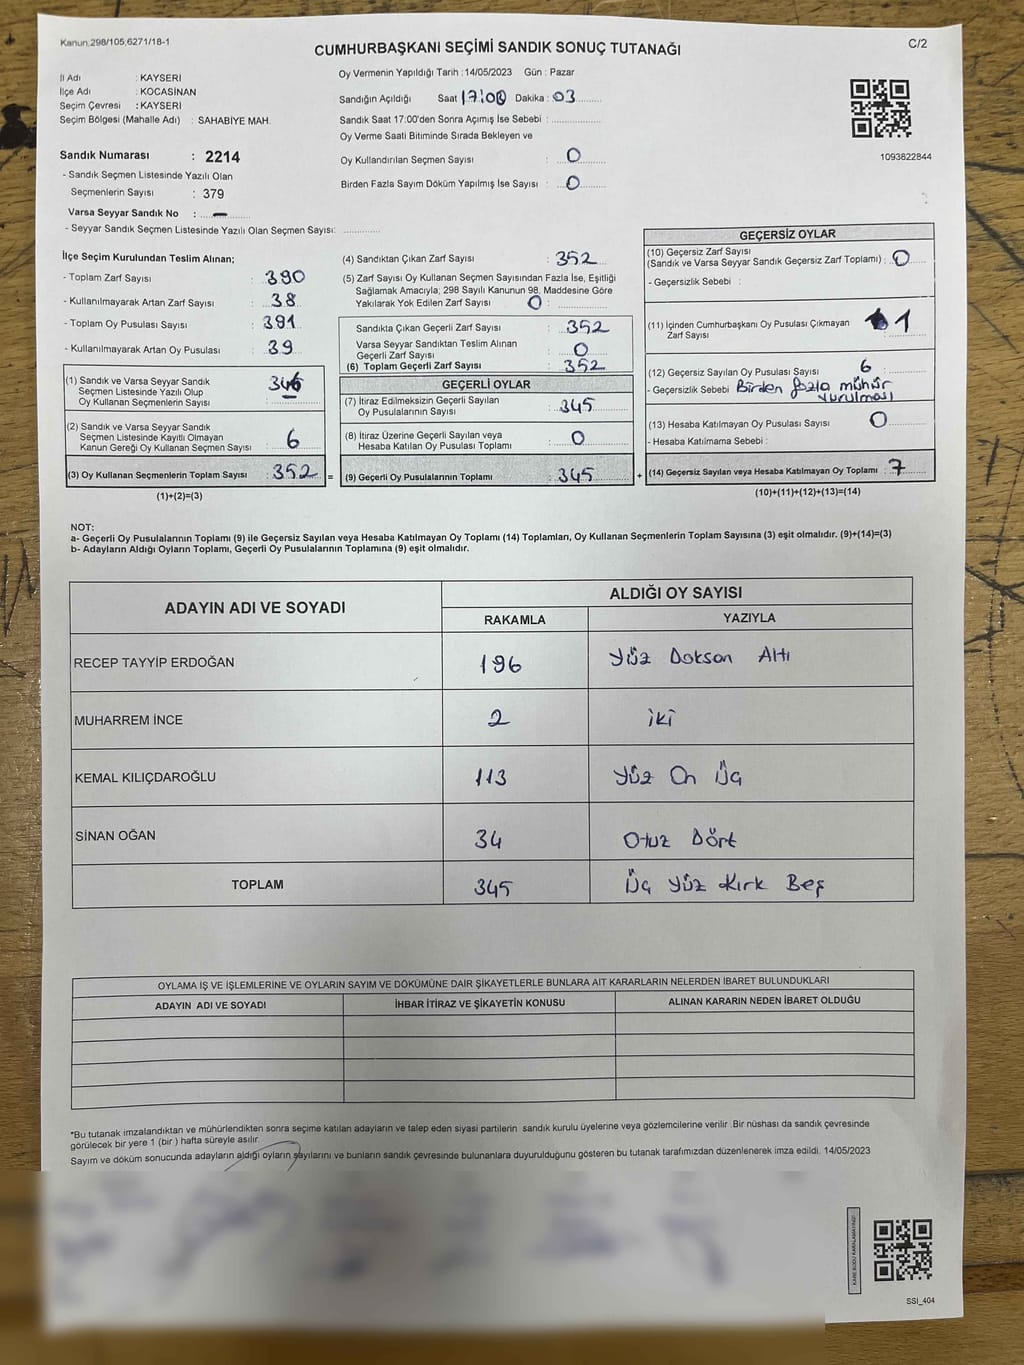 Kanun,298/105,6271/18-1
C/2
CUMHURBAŞKANI SEÇİMİ SANDIK SONUÇ TUTANAĞI
İl Adı : KAYSERİ
İlçe Adı : KOCASİNAN
Seçim Çevresi : KAYSERİ
Seçim Bölgesi (Mahalle Adı) : SAHABİYE MAH.
Sandık Numarası : 2214
- Sandık Seçmen Listesinde Yazılı Olan
Seçmenlerin Sayısı : 379
Varsa Seyyar Sandık No : —
- Seyyar Sandık Seçmen Listesinde Yazılı Olan Seçmen Sayısı:
Oy Vermenin Yapıldığı Tarih :14/05/2023 Gün : Pazar
Sandığın Açıldığı Saat 17:00 Dakika : 03
Sandık Saat 17:00'den Sonra Açımış İse Sebebi :
Oy Verme Saati Bitiminde Sırada Bekleyen ve
Oy Kullandırılan Seçmen Sayısı : 0
Birden Fazla Sayım Döküm Yapılmış İse Sayısı : 0
1093822844
İlçe Seçim Kurulundan Teslim Alınan;
- Toplam Zarf Sayısı : 390
- Kullanılmayarak Artan Zarf Sayısı : 38
- Toplam Oy Pusulası Sayısı : 391
- Kullanılmayarak Artan Oy Pusulası : 39
(1) Sandık ve Varsa Seyyar Sandık
Seçmen Listesinde Yazılı Olup
Oy Kullanan Seçmenlerin Sayısı : 346
(2) Sandık ve Varsa Seyyar Sandık
Seçmen Listesinde Kayıtlı Olmayan
Kanun Gereği Oy Kullanan Seçmen Sayısı : 6
(3) Oy Kullanan Seçmenlerin Toplam Sayısı : 352
(1)+(2)=(3)
=
(4) Sandıktan Çıkan Zarf Sayısı : 352
(5) Zarf Sayısı Oy Kullanan Seçmen Sayısından Fazla İse, Eşitliği
Sağlamak Amacıyla, 298 Sayılı Kanunun 98. Maddesine Göre
Yakılarak Yok Edilen Zarf Sayısı : 0
Sandıkta Çıkan Geçerli Zarf Sayısı : 352
Varsa Seyyar Sandıktan Teslim Alınan
Geçerli Zarf Sayısı : 0
(6) Toplam Geçerli Zarf Sayısı : 352
GEÇERLİ OYLAR
(7) İtiraz Edilmeksizin Geçerli Sayılan
Oy Pusulalarının Sayısı : 345
(8) İtiraz Üzerine Geçerli Sayılan veya
Hesaba Katılan Oy Pusulası Toplamı : 0
(9) Geçerli Oy Pusulalarının Toplamı : 345
+
GEÇERSİZ OYLAR
(10) Geçersiz Zarf Sayısı
(Sandık ve Varsa Seyyar Sandık Geçersiz Zarf Toplamı) : 0
- Geçersizlik Sebebi :
(11) İçinden Cumhurbaşkanı Oy Pusulası Çıkmayan : 1
Zarf Sayısı
(12) Geçersiz Sayılan Oy Pusulası Sayısı : 6
- Geçersizlik Sebebi : Birden fazla mühür
vurulması
(13) Hesaba Katılmayan Oy Pusulası Sayısı : 0
- Hesaba Katılmama Sebebi :
(14) Geçersiz Sayılan veya Hesaba Katılmayan Oy Toplamı : 7
(10)+(11)+(12)+(13)=(14)
NOT:
a- Geçerli Oy Pusulalarının Toplamı (9) ile Geçersiz Sayılan veya Hesaba Katılmayan Oy Toplamı (14) Toplamları, Oy Kullanan Seçmenlerin Toplam Sayısına (3) eşit olmalıdır. (9)+(14)=(3)
b- Adayların Aldığı Oyların Toplamı, Geçerli Oy Pusulalarının Toplamına (9) eşit olmalıdır.
ADAYIN ADI VE SOYADI
ALDIĞI OY SAYISI
RAKAMLA YAZIYLA
RECEP TAYYİP ERDOĞAN 196 Yüz Doksan Altı
MUHARREM İNCE 2 iki
KEMAL KILIÇDAROĞLU 113 Yüz On Üç
SİNAN OĞAN 34 Otuz Dört
TOPLAM 345 Üç Yüz Kırk Beş
OYLAMA İŞ VE İŞLEMLERİNE VE OYLARIN SAYIM VE DÖKÜMÜNE DAİR ŞİKAYETLERLE BUNLARA AİT KARARLARIN NELERDEN İBARET BULUNDUKLARI
ADAYIN ADI VE SOYADI İHBAR İTİRAZ VE ŞİKAYETİN KONUSU ALINAN KARARIN NEDEN İBARET OLDUĞU
*Bu tutanak imzalandıktan ve mühürlendikten sonra seçime katılan adayların ve talep eden siyasi partilerin sandık kurulu üyelerine veya gözlemcilerine verilir .Bir nüshası da sandık çevresinde
görülecek bir yere 1 (bir ) hafta süreyle asılır.
Sayım ve döküm sonucunda adayların aldığı oyların sayılarını ve bunların sandık çevresinde bulunanlara duyurulduğunu gösteren bu tutanak tarafımızdan düzenlenerek imza edildi. 14/05/2023
KARE KODU KARALAMAYINIZ!
SSI_404